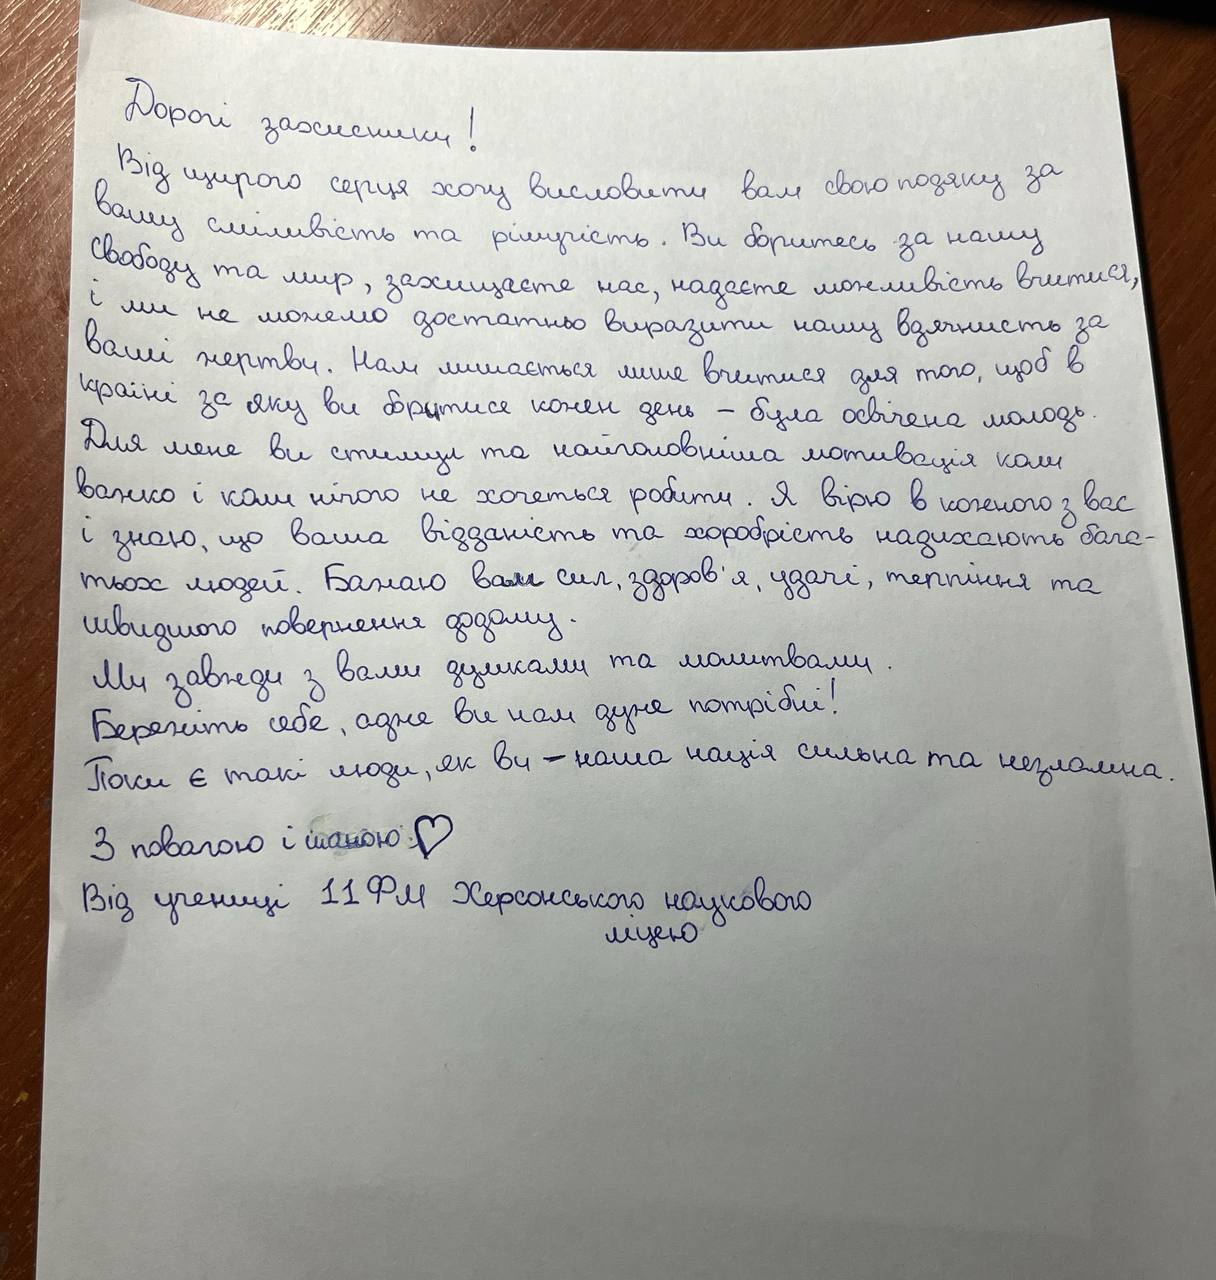 Дорогі захисники!
Від щирого серця хочу висловити вам свою подяку за
вашу сміливість та рішучість. Ви боритесь за нашу
свободу та мир, захищаєте нас, надаєте можливість вчитися,
і ми не можемо достатньо виразити нашу вдячність за
ваші жертви. Нам лишається лише вчитися для того, щоб в
країні за яку ви боритися кожен день – була освічена молодь.
Для мене ви стимул та найголовніша мотивація коли
важко і коли нічого не хочеться робити. Я вірю в кожного з вас
і знаю, що ваша відданість та хоробрість надихають бага-
тьох людей. Бажаю вам сил, здоров'я, удачі, терпіння та
швидшого повернення додому.
Ми завжди з вами думками та молитвами.
Бережіть себе, адже ви нам дуже потрібні!
Поки є такі люди, як ви – наша нація сильна та незламна.
З повагою і шаною ♡
Від учениці 11ФМ Херсонського наукового
ліцею